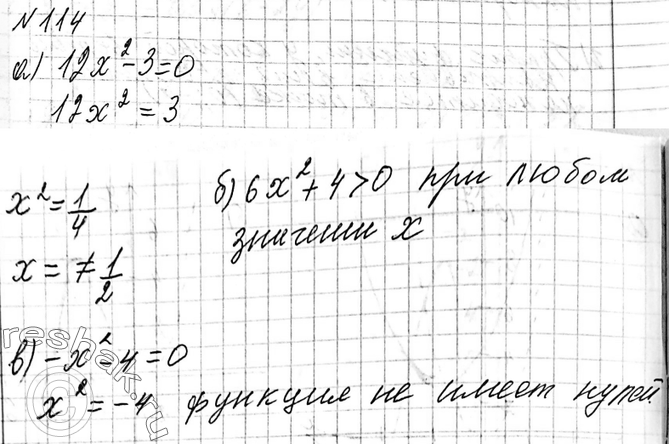 №114
а) 12x²-3=0
12x²=3
x²=1/4
x=±1/2
б) 6x²+4>0 при любом
значении x
в) -x²-4=0
x²=-4 функция не имеет нулей
reshak.ru